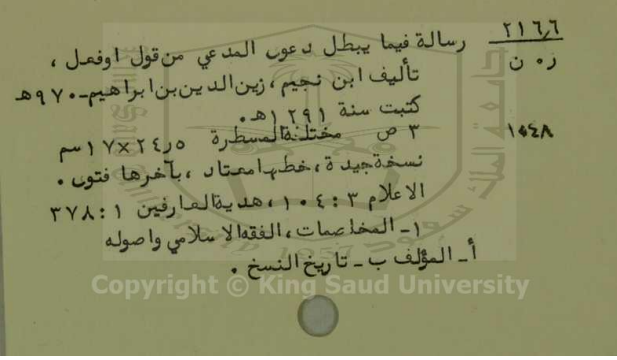 ٢١٦٫٦ رسالة فيما يبطل دعوى المدعي من قول اوفعل ،
ز٠ن تأليف ابن نجيم، زين الدين بن ابراهيم-٩٧٠هـ
كتبت سنة ١٢٩١هـ.
٣ ص مختلفة المسطرة ٢٤٫٥×١٧سم
نسخة جيدة ، خطها معتاد ، بآخرها فتوى .
الاعلام ٣ : ١٠٤ ، هدية العارفين ١ : ٣٧٨
١- المخاصمات ، الفقه الاسلامي واصوله
أ- المؤلف ب- تاريخ النسخ .
Copyright © King Saud University